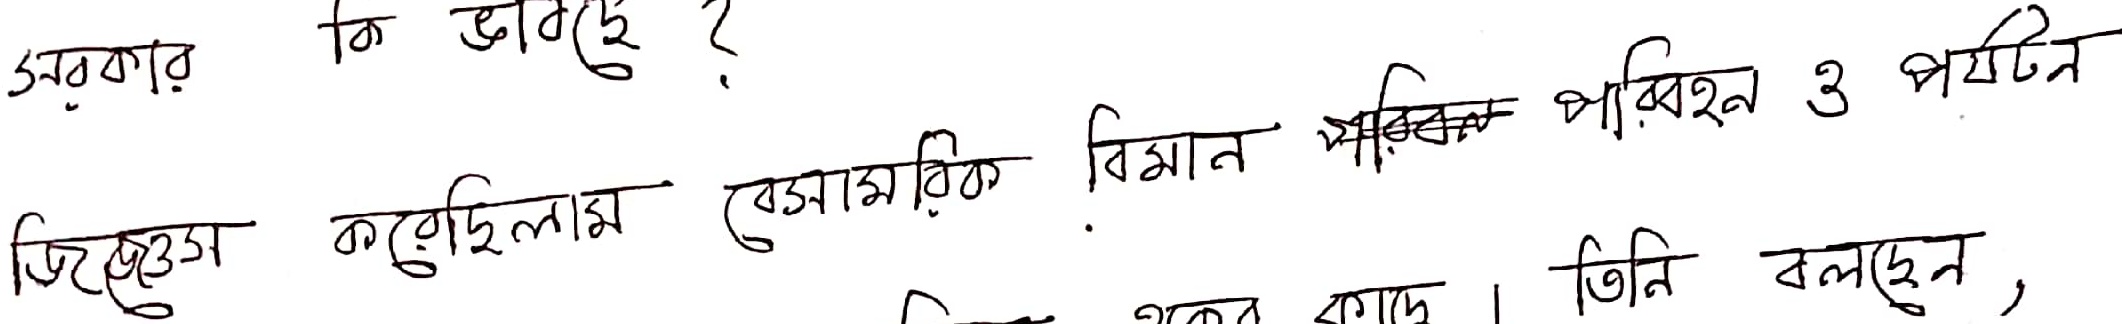 সরকার কি ভাবছে ?
জিজ্ঞেস করেছিলাম বেসামরিক বিমান পরিবহন ও পর্যটন
কাছে । তিনি বলছেন ,